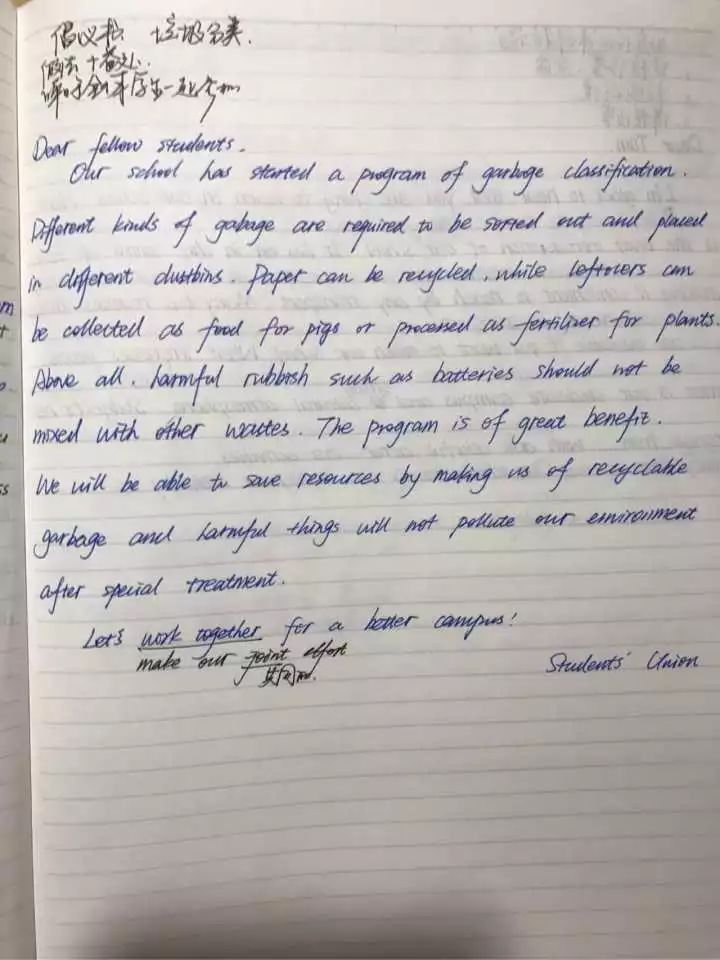 倡议书 垃圾分类.
做法+益处.
呼吁全体学生一起参加
Dear fellow students.
Our school has started a program of garbage classification.
Different kinds of gabage are required to be sorted out and placed
in different dustbins. Paper can be recycled, while leftovers can
be collected as food for pigs or processed as fertilizer for plants.
Above all, harmful rubbish such as batteries should not be
mixed with other wastes. The program is of great benefit.
We will be able to save resources by making us of recyclable
garbage and harmful things will not pollute our environment
after special treatment.
Let's work together for a better campus!
make our joint effort
共同的.
Students' Union